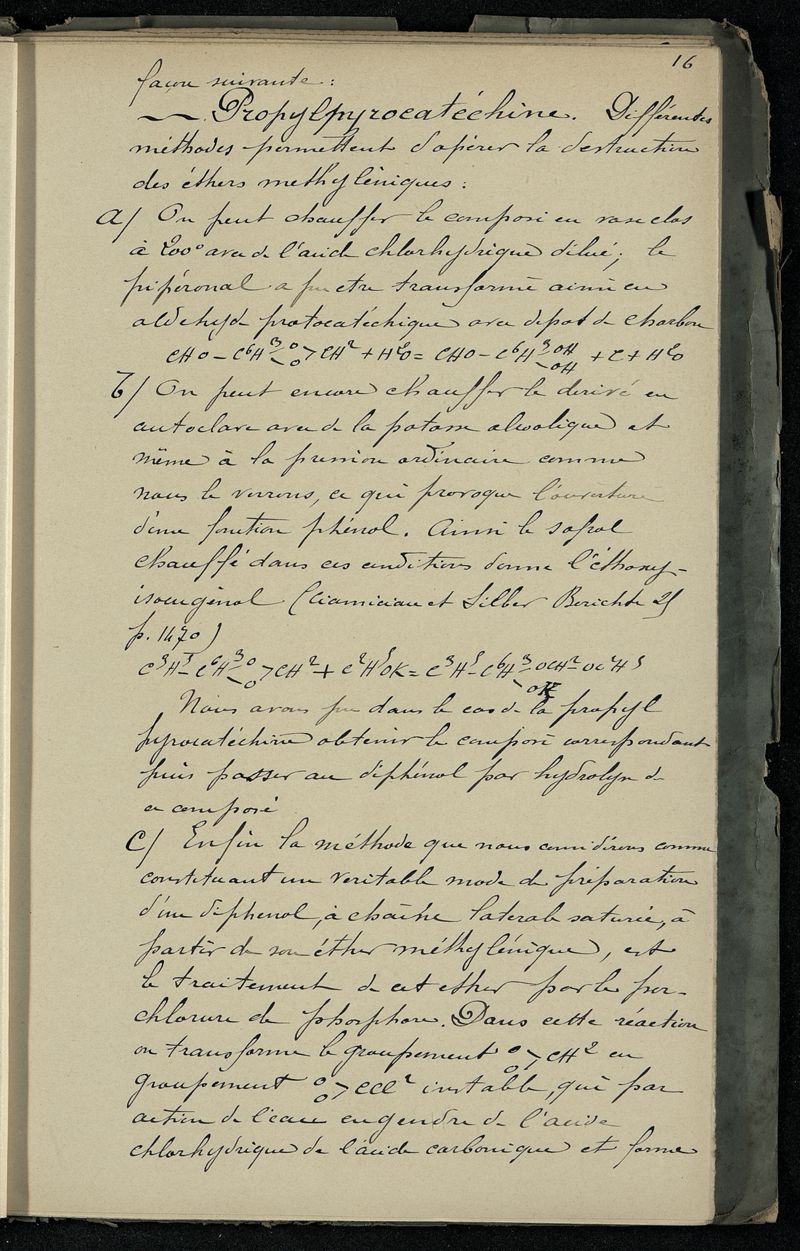 16
façon suivante :
— Propylpyrocatéchine. Différentes
méthodes permettent d'opérer la destruction
des éthers methyléniques :
a/ On peut chauffer le composé en vase clos
à 200° avec de l'acide chlorhydrique dilué ; le
pipéronal a pu etre transformé ainsi en
aldehyde protocatéchique avec depot de charbon
CHO - C⁶H³ -O -O > CH² + H²O = CHO - C⁶H³ -OH -OH + C + H²O
b/ On peut encore chauffer le derivé en
autoclave avec de la potasse alcoolique et
même à la pression ordinaire comme
nous le verrons, ce qui provoque l'ouverture
d'une fonction phénol. Ainsi le safrol
chauffé dans ces conditions donne l'éthoxy-
isoeugénol (Ciamician et Silber Berichte 25
p. 1470)
C³H⁵ - C⁶H³ -O -O > CH² + C²H⁵OK = C³H⁵ - C⁶H³ -OCH²-OC²H⁵ -OK
Nous avons pu dans le cas de la propyl
pyrocatéchine obtenir le composé correspondant
puis passer au diphénol par hydrolyse de
ce composé
C/ Enfin la méthode que nous considérons comme
constituant un veritable mode de préparation
d'un diphenol, à chaîne laterale saturée, à
partir de son éther méthylénique, est
le traitement de cet ether par le per-
chlorure de phosphore. Dans cette réaction
on transforme le groupement O O > CH² en
groupement O O > CCl² instable, qui par
action de l'eau engendre de l'acide
chlorhydrique de l'acide carbonique et forme